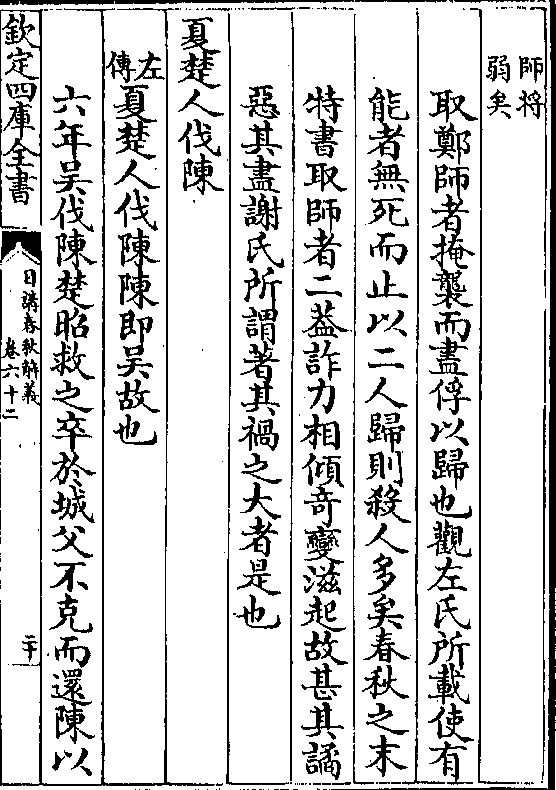 師將
弱矣
取鄭師者掩襲而盡俘以歸也觀左氏所載使有
能者無死而止以二人歸則殺人多矣春秋之末
特書取師者二葢詐力相傾奇變滋起故甚其譎
惡其盡謝氏所謂著其禍之大者是也
夏楚人伐陳
左傳夏楚人伐陳陳即吴故也
六年吴伐陳楚昭救之卒於城父不克而還陳以
欽定四庫全書
日講春秋解義
卷六十二
二十